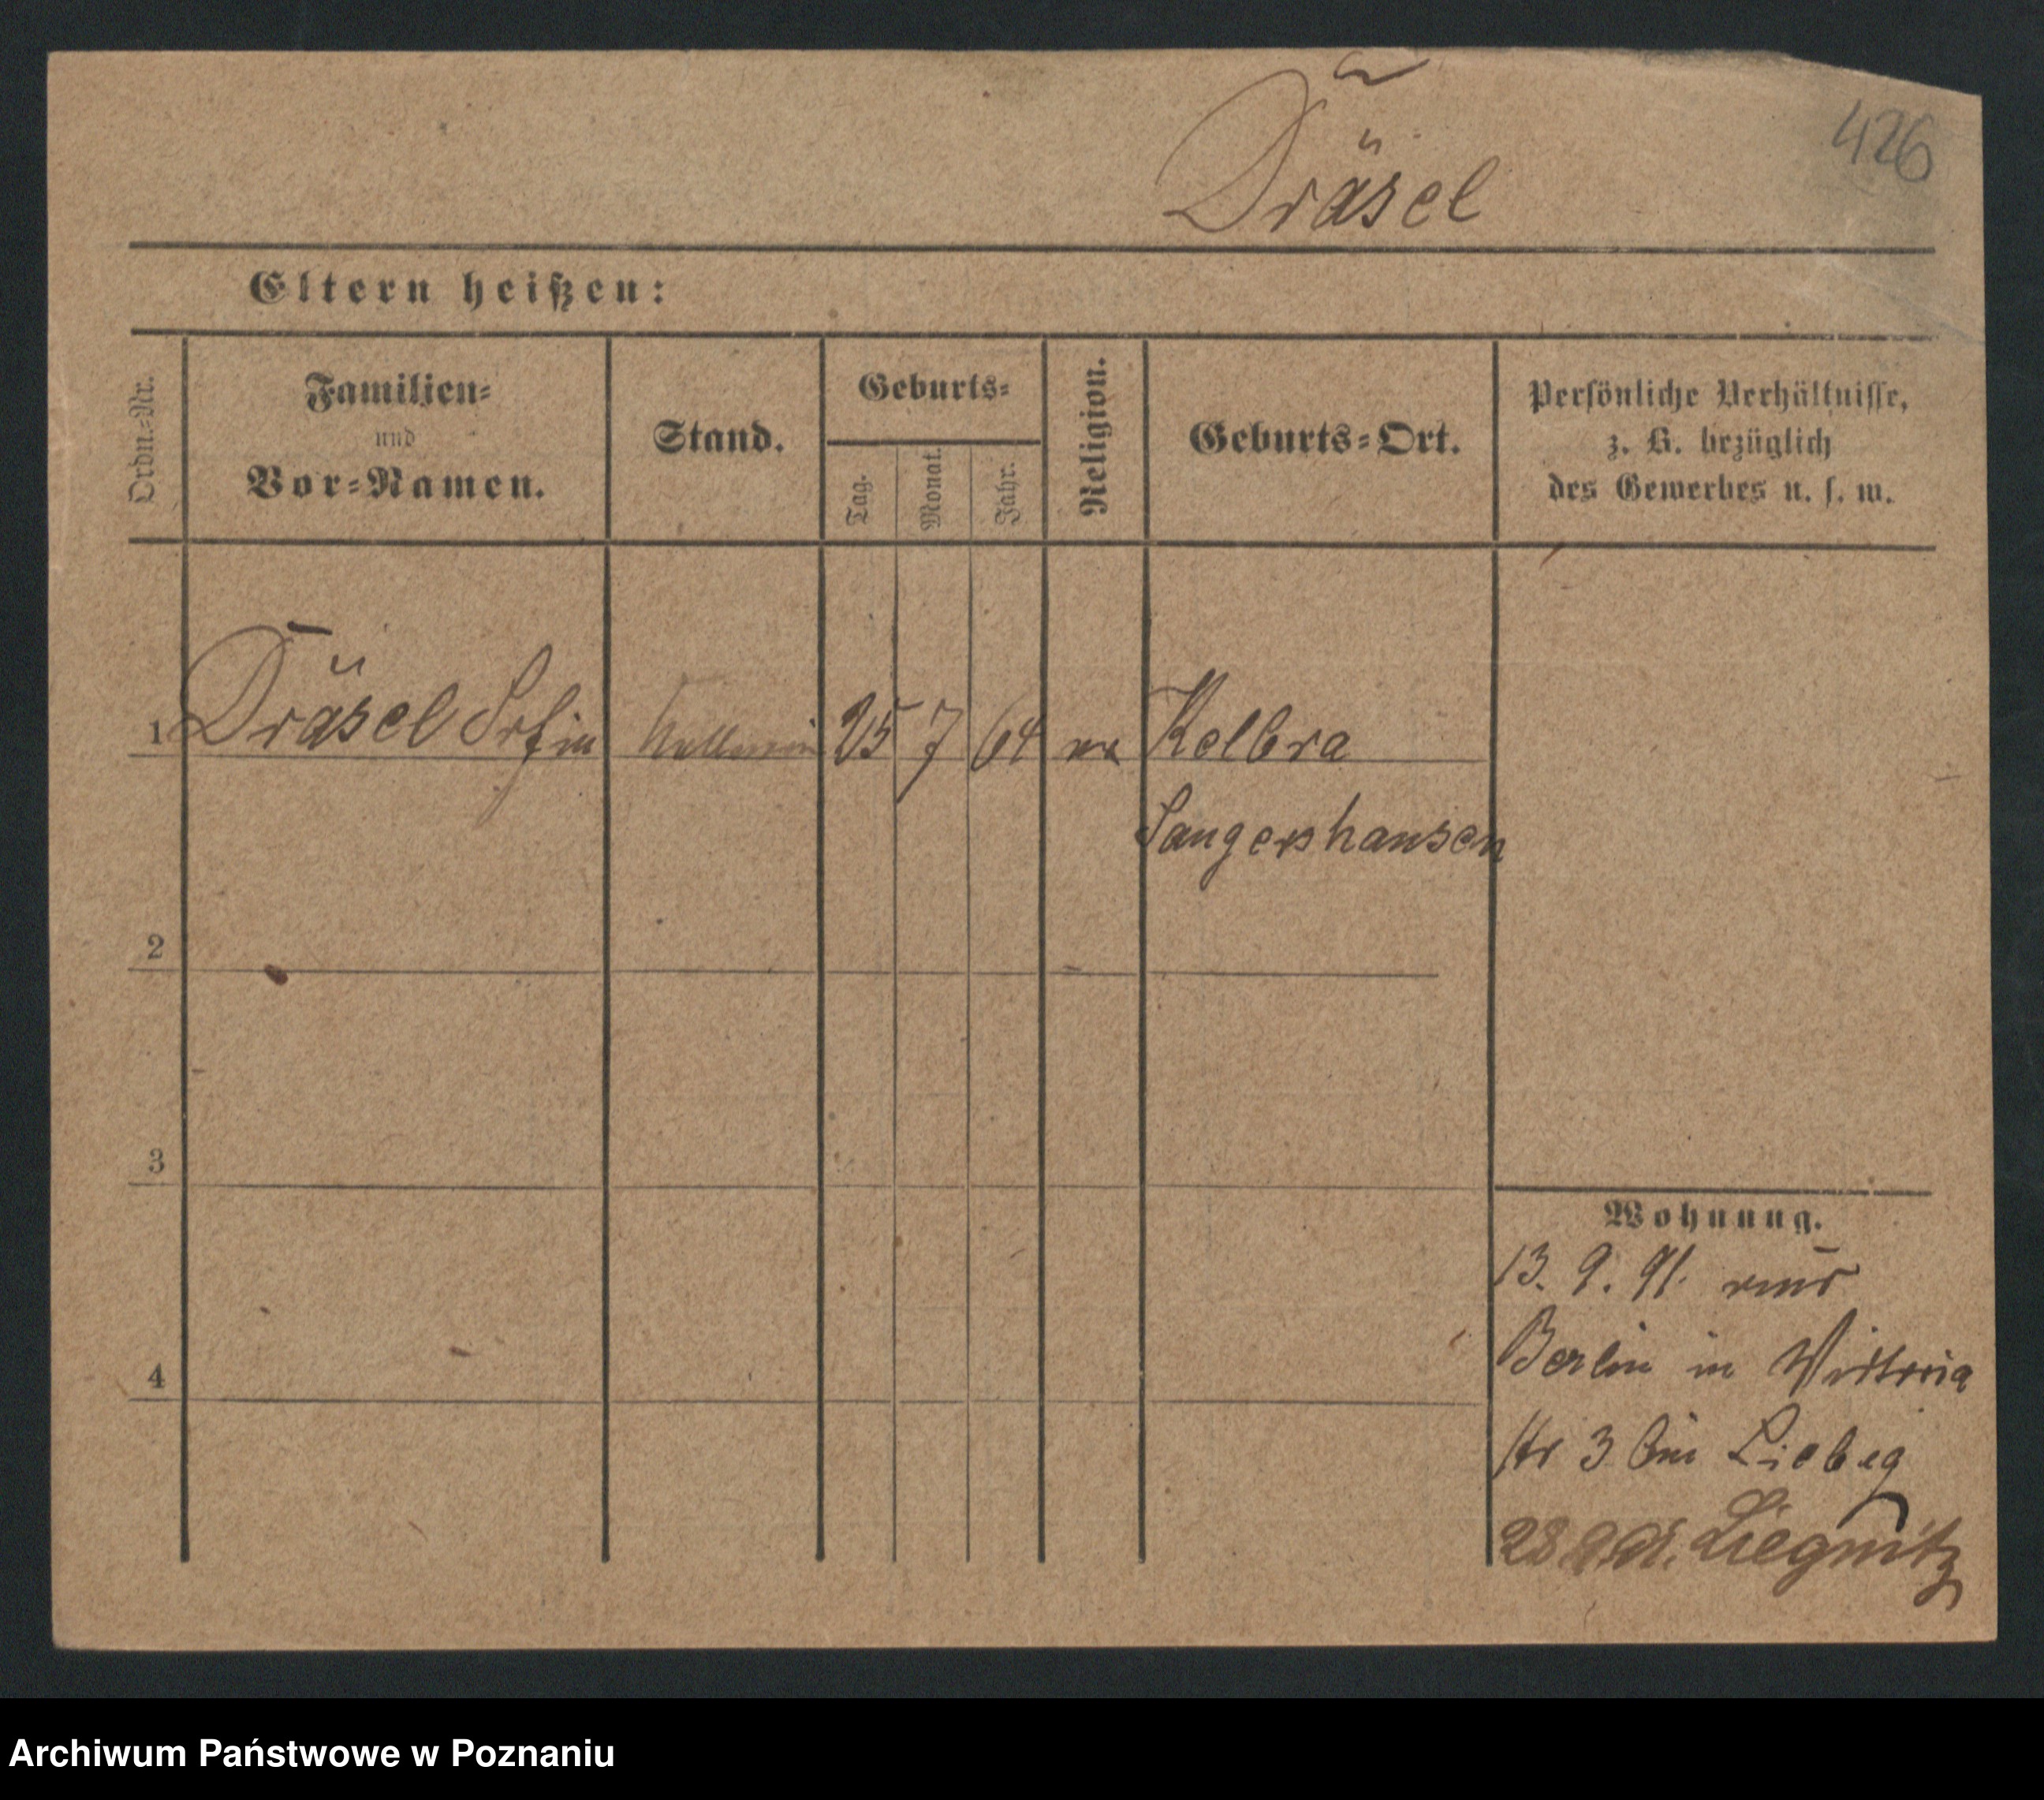 426
Dräsel
Eltern heißen:
Ordn.-Nr.
Familien-
und
Vor-Namen.
Stand.
Geburts-
Tag.
Monat.
Jahr.
Religion.
Geburts-Ort.
Persönliche Verhältnisse,
z. B. bezüglich
des Gewerbes u. s. w.
1 Dräsel 25 7 64 Kelbra
Sangershausen
2
3
4
Wohnung.
13. 9. 91.
Berlin in Viktoria
str 3 bei Liebeg
28.9.91. Liegnitz
Archiwum Państwowe w Poznaniu